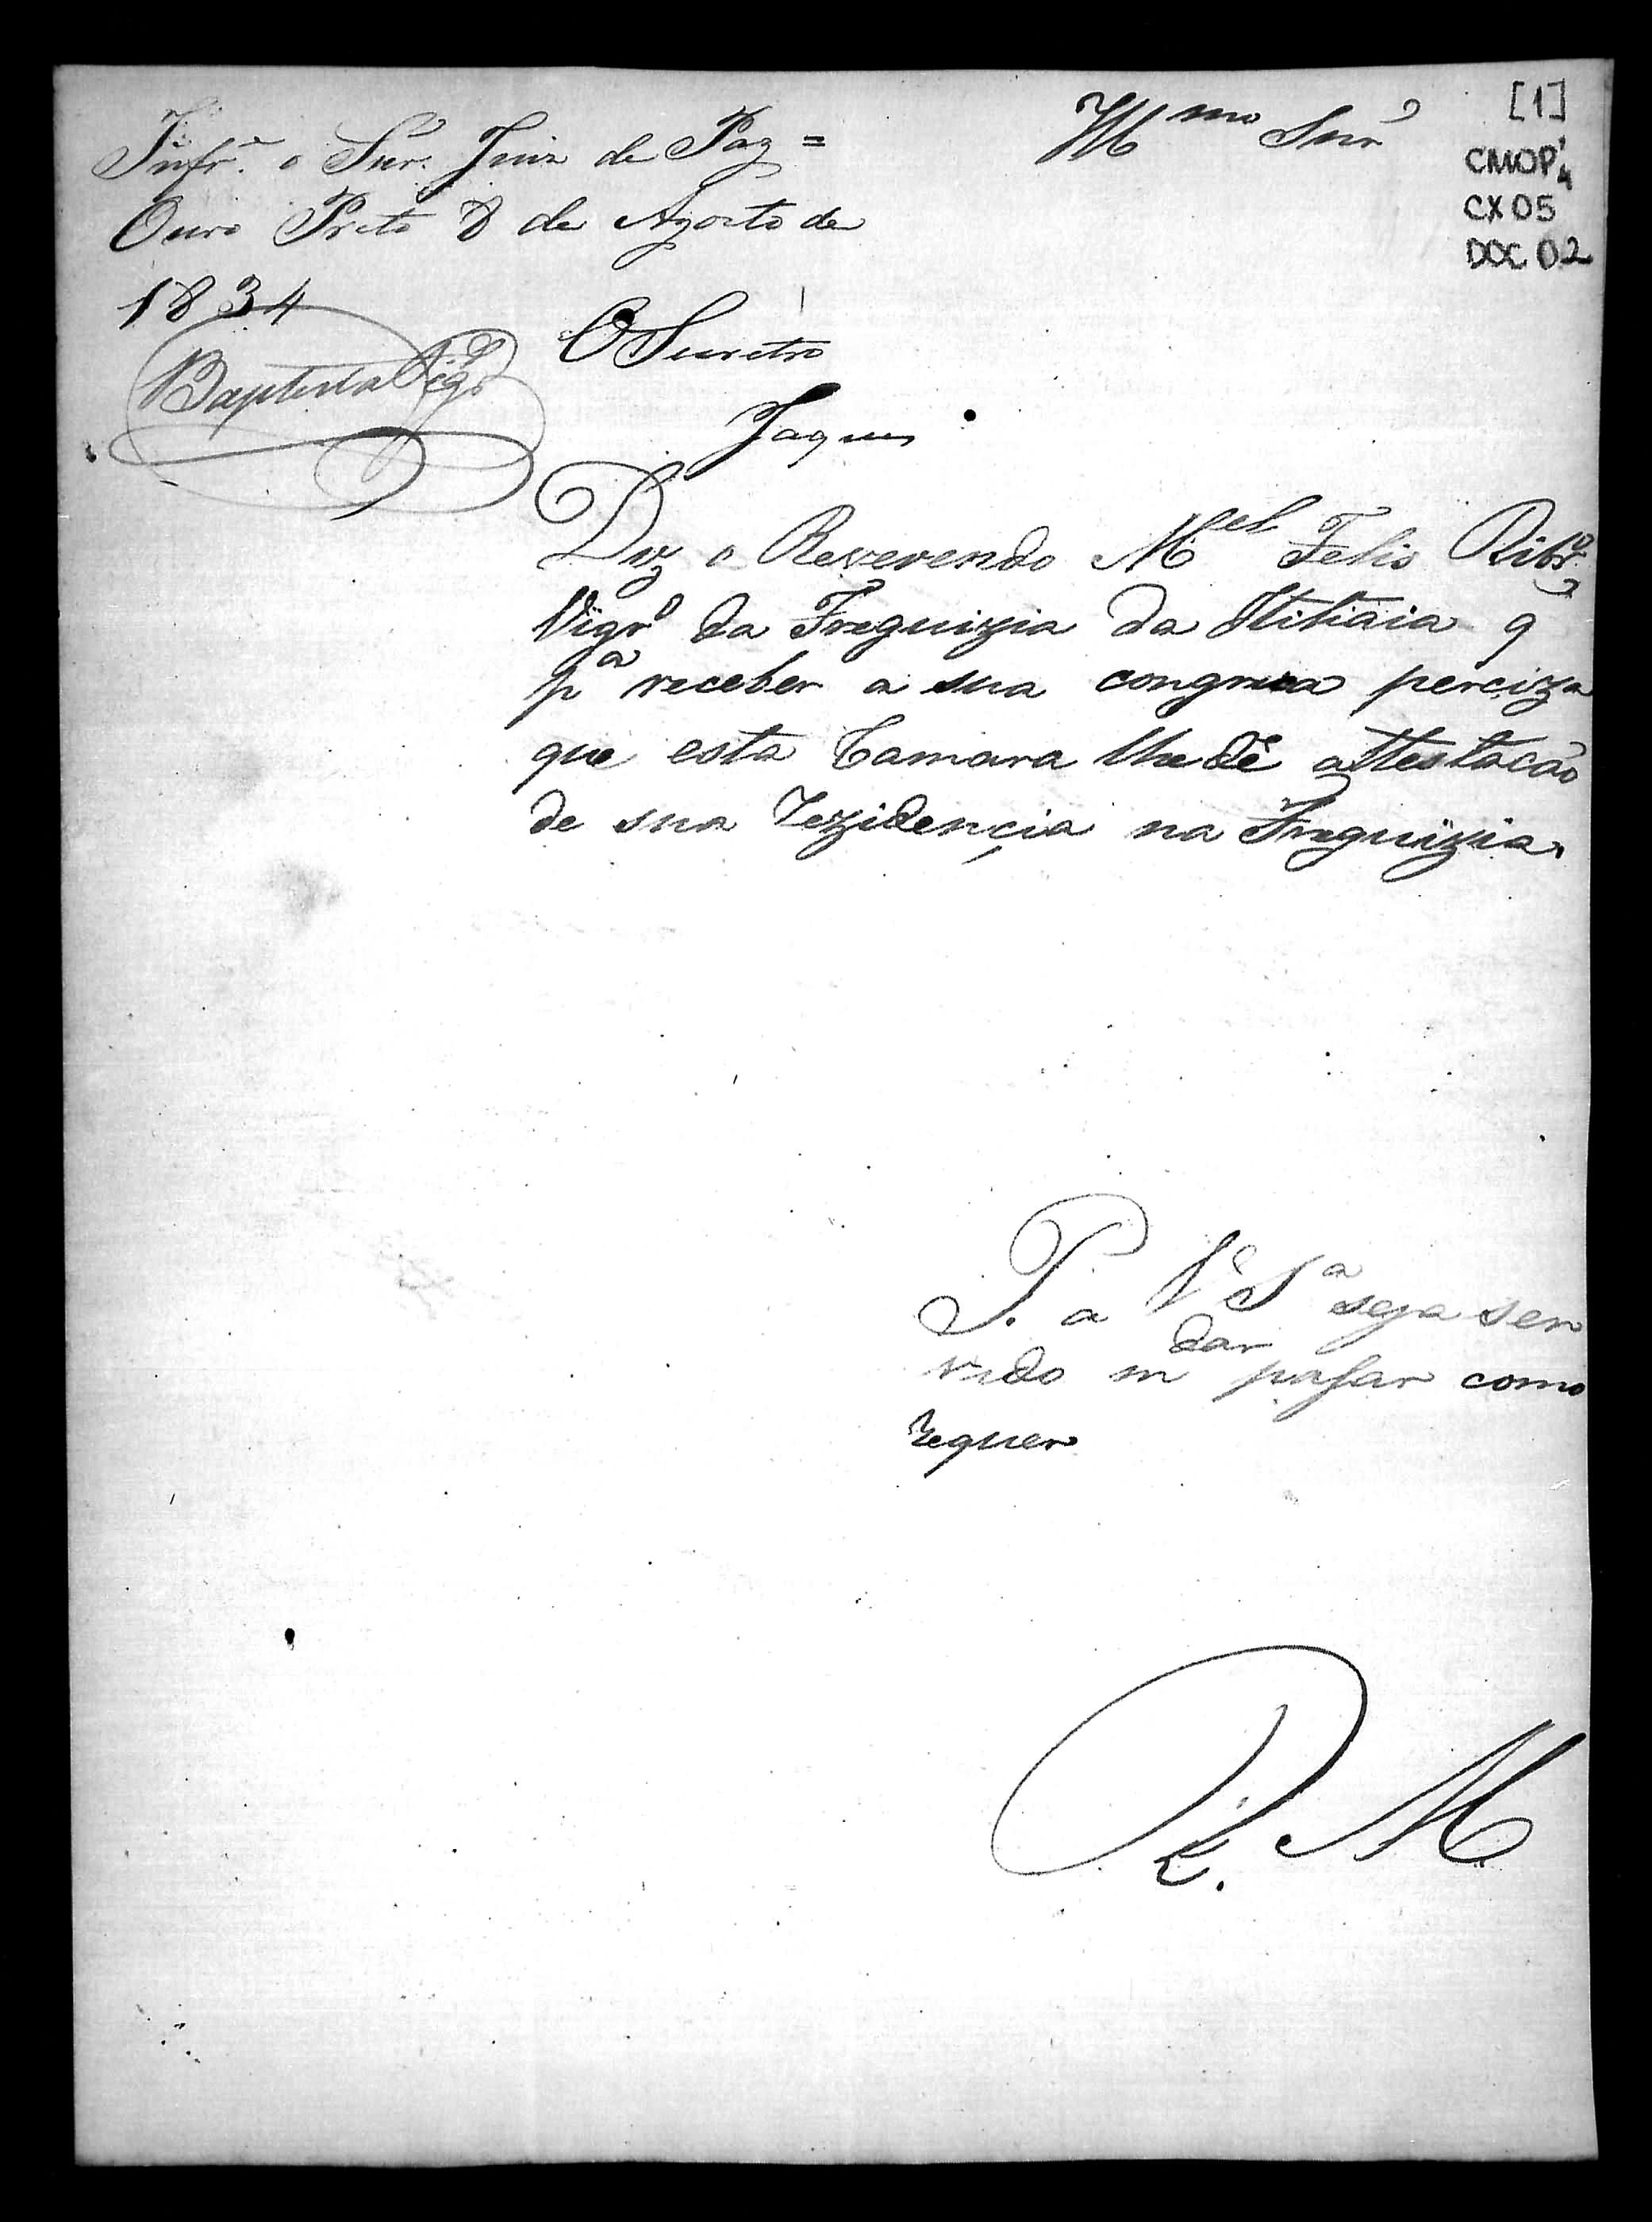 Infr.e o Snr. Juiz de Paz =
Ouro Preto 8 de Agosto de
1834
Baptista Figdo
O Secretro
Jaques
Illmo Snr
[1]
CMOP
CX 05
DOC 02
Diz o Reverendo Mel Felis Ribro
Vigro da Freguizia da Ititiaia q
pa receber a sua congrua perciza
que esta Camara lhe dê attestacão
de sua rezidencia na Freguizia.
P. a V. Sa seja ser
vido mdar pasar como
requer
E. R. M.